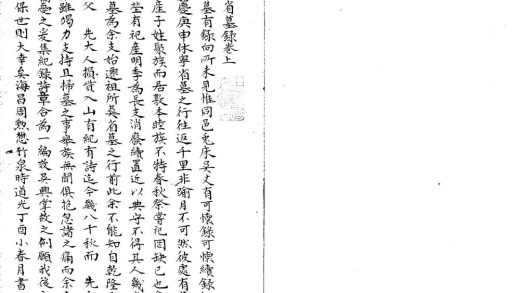 省墓錄卷上
墓有錄向所未見惟同邑兔床吳丈有可懷錄可懷續錄
慶庚申休寧省墓之行往返千里非踰月不可然彼處有
產子姓聚族而居敦本睦族不特春秋祭嘗祀罔缺已也
塋有祀產明季為長支消廢續置近以典守不得其人幾
墓為余支始遷祖所葬省墓之行前此余不能知自乾隆
父先大人損貲入山有紀有詩迄今幾八十秋而先
雖竭力支持且掃墓之事舉族無聞俱抱忽諸之痛而余
憂之爰集紀錄詩章合為一編故吳興掌故之例願我後
保世則大幸矣海昌周勲懋竹泉時道光丁酉小春月書